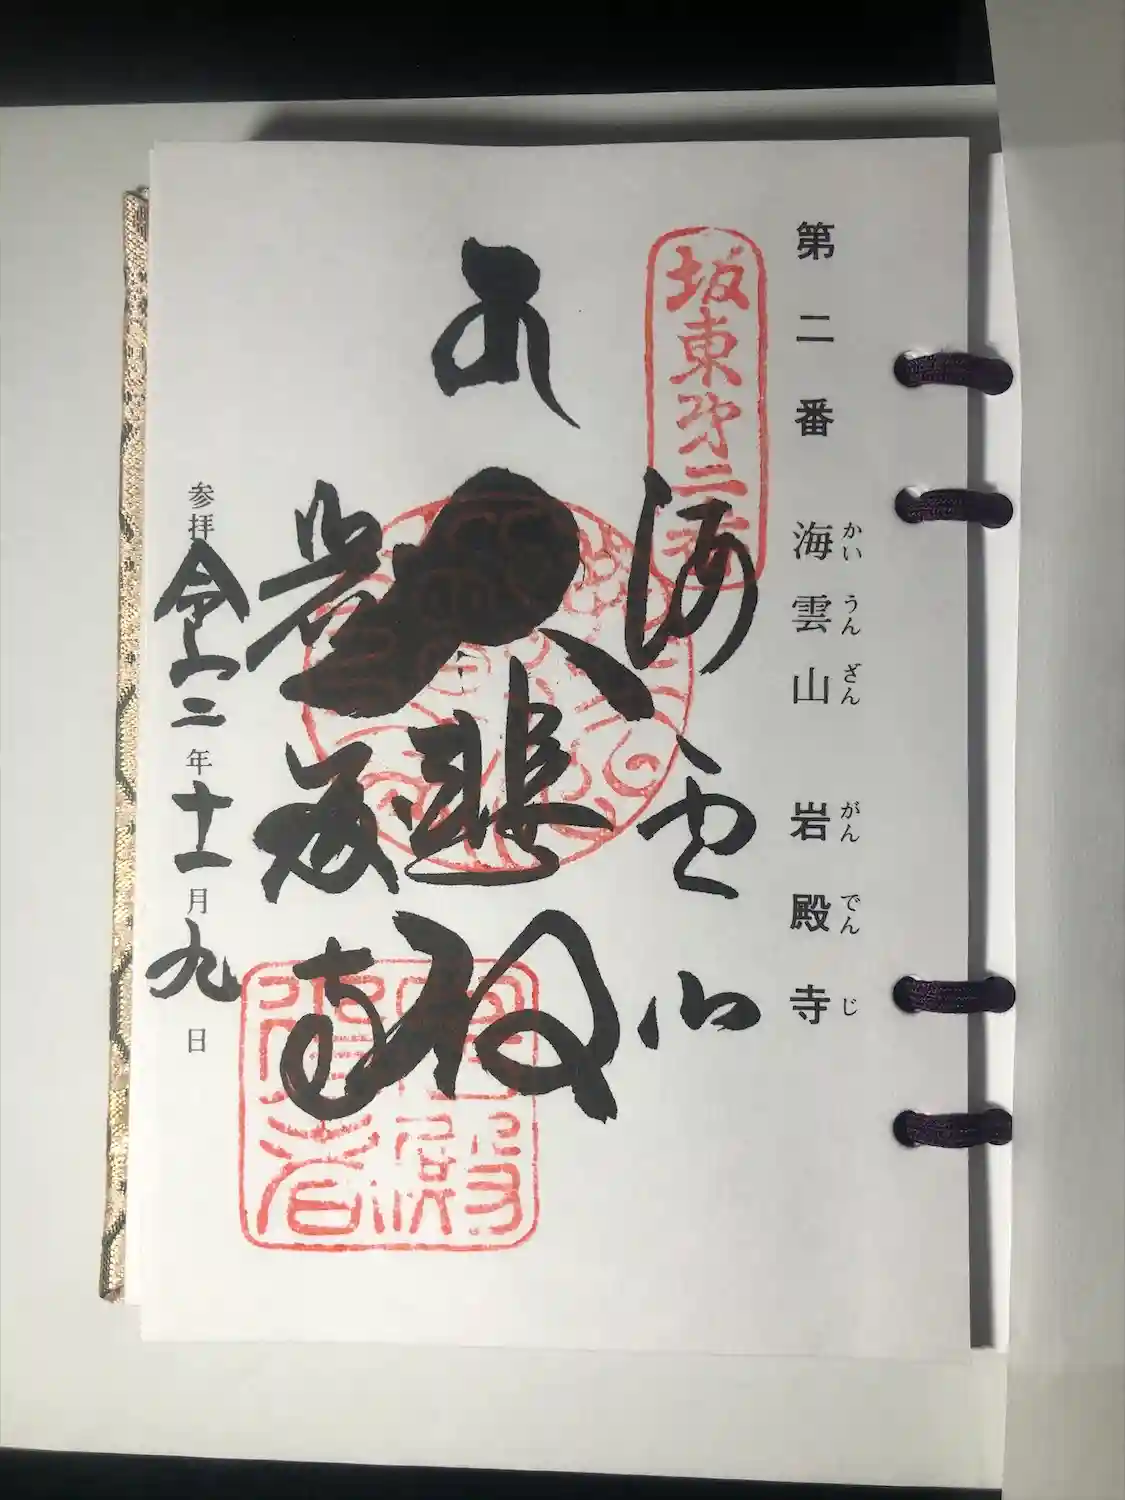 第二番 海雲山 岩殿寺
かい うん ざん がん でん じ
坂東第二番
海雲山
大悲殿
岩殿寺
参拝 令和二年十一月九日